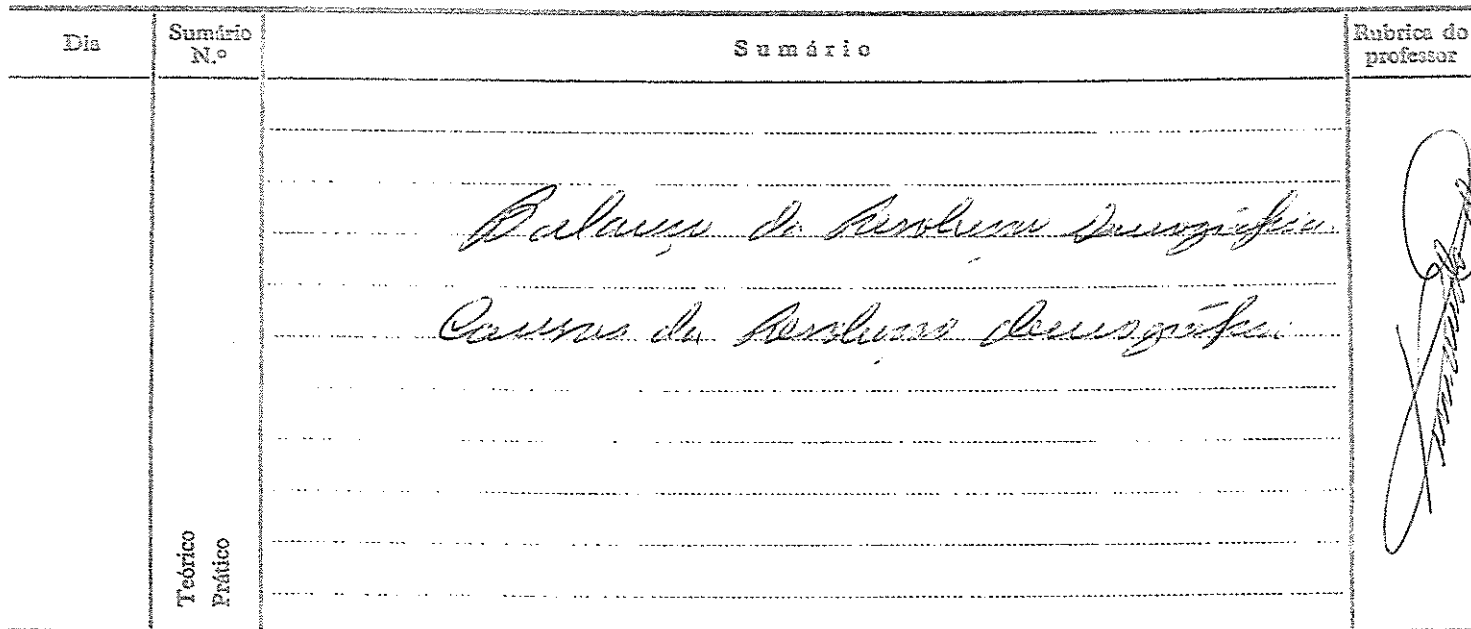 Dia
Sumário N.º
Sumário
Rubrica do professor
Balanço da Revolução Demográfica.
Causas da Revolução demográfica
Teórico
Prático